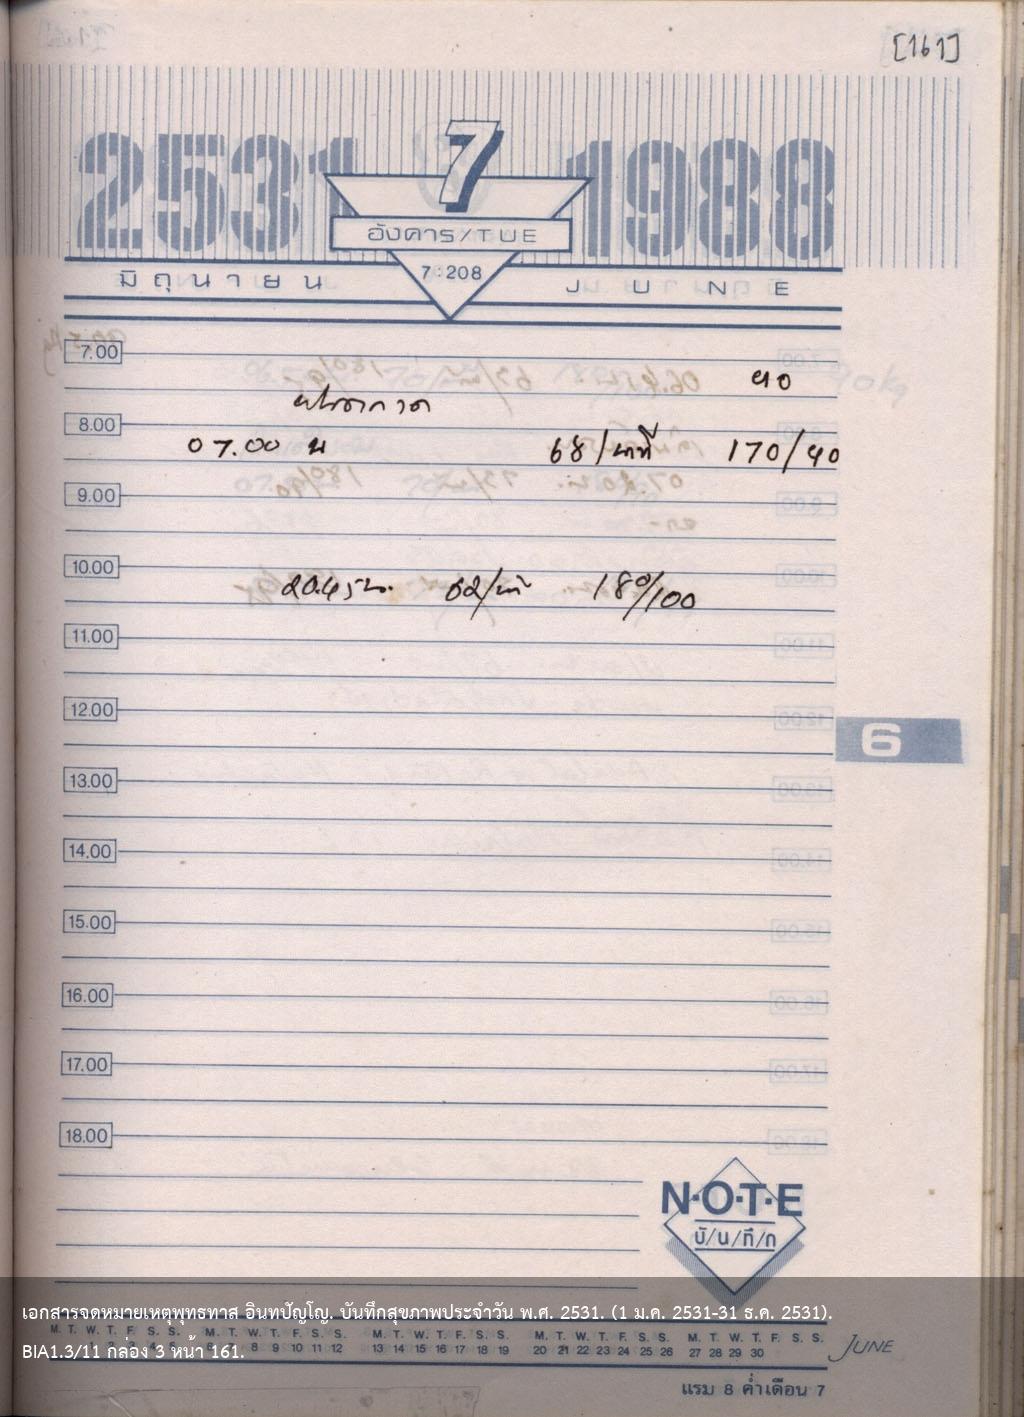 [161]
2531 7 1988
อังคาร/TUE
7:208
มิถุนายน JUNE
7.00
90
8.00
07.00 น 68/นาที 170/90
9.00
10.00
20.45 น. 62/นาที 180/100
11.00
12.00
6
13.00
14.00
15.00
16.00
17.00
18.00
N·O·T·E
บั/น/ทึ/ก
เอกสารจดหมายเหตุพุทธทาส อินทปัญโญ. บันทึกสุขภาพประจำวัน พ.ศ. 2531. (1 ม.ค. 2531-31 ธ.ค. 2531).
M. T. W. T. F. S. S. M. T. W. T. F. S. S. M. T. W. T. F. S. S. M. T. W. T. F. S. S. M. T. W. T. F. S. S.
BIA1.3/11 กล่อง 3 หน้า 161.
8 9 10 11 12 13 14 15 16 17 18 19 20 21 22 23 24 25 26 27 28 29 30 JUNE
แรม 8 ค่ำเดือน 7